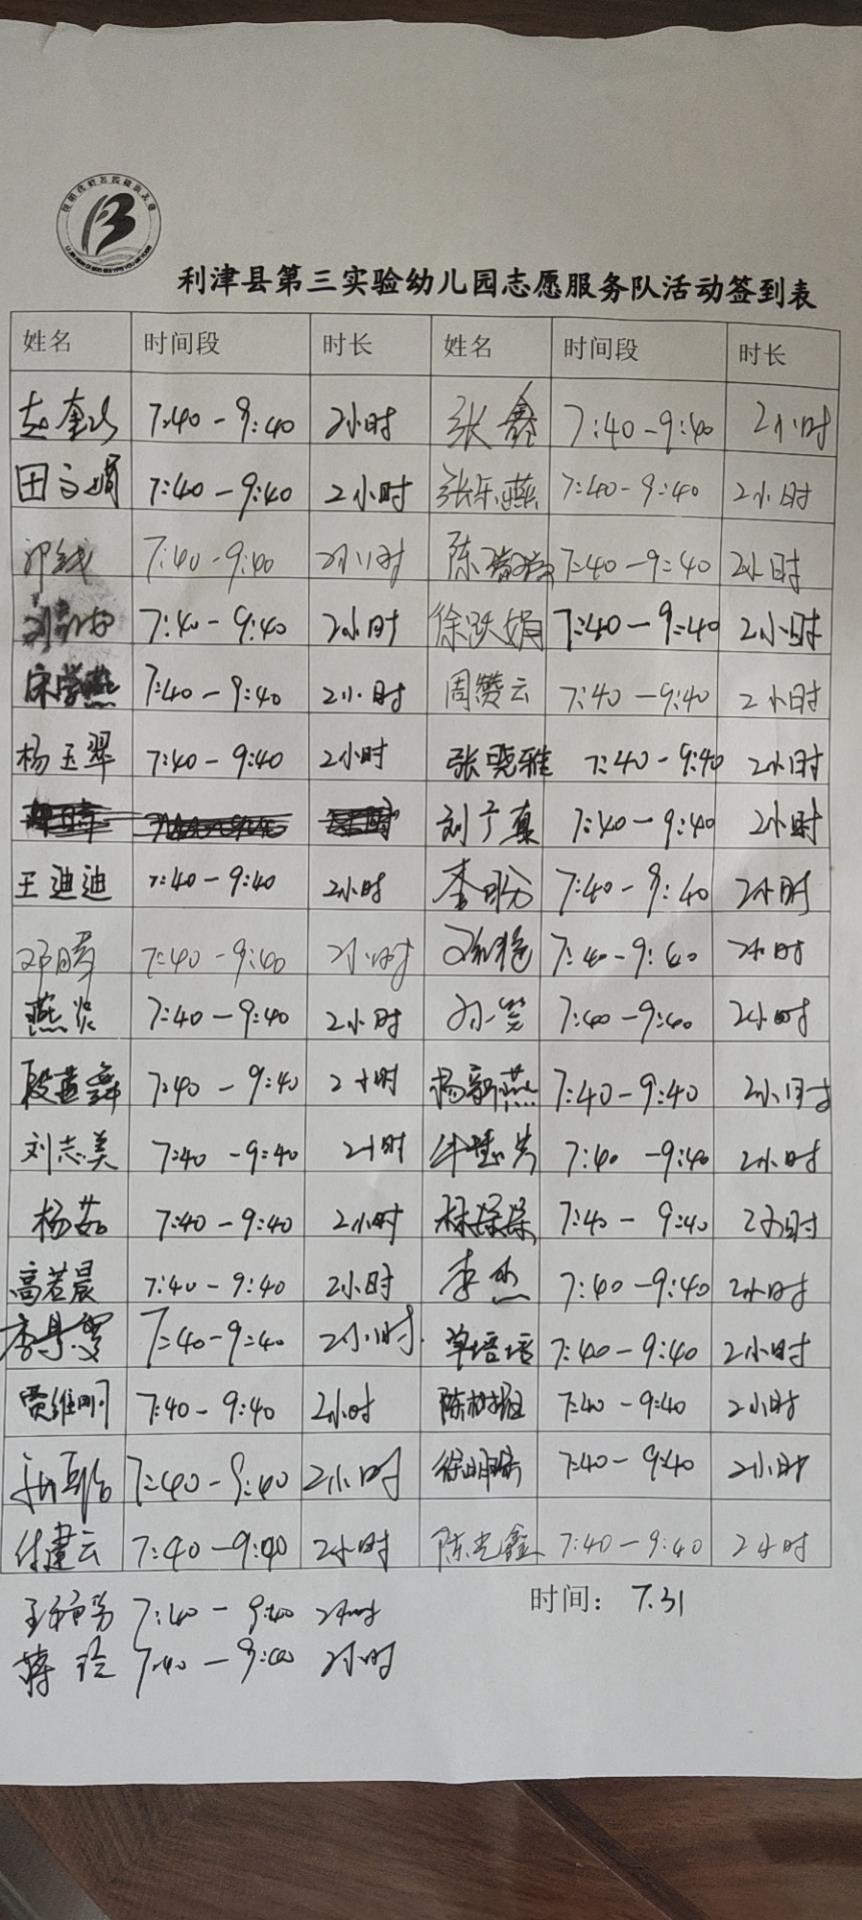 利津县第三实验幼儿园志愿服务队活动签到表
姓名 时间段 时长 姓名 时间段 时长
7:40-9:40 2小时 张鑫 7:40-9:40 2小时
田文娟 7:40-9:40 2小时 张乐燕 7:40-9:40 2小时
7:40-9:40 2小时 陈 7:40-9:40 2小时
7:40-9:40 2小时 徐跃娟 7:40-9:40 2小时
宋学燕 7:40-9:40 2小时 周赞云 7:40-9:40 2小时
杨玉翠 7:40-9:40 2小时 张晓雅 7:40-9:40 2小时
刘广真 7:40-9:40 2小时
王迪迪 7:40-9:40 2小时 李盼 7:40-9:40 2小时
邓晴 7:40-9:40 2小时 7:40-9:40 2小时
燕炎 7:40-9:40 2小时 孙笑 7:40-9:40 2小时
7:40-9:40 2小时 杨新燕 7:40-9:40 2小时
刘志美 7:40-9:40 2小时 7:40-9:40 2小时
杨茹 7:40-9:40 2小时 林朵朵 7:40-9:40 2小时
高若晨 7:40-9:40 2小时 李杰 7:40-9:40 2小时
7:40-9:40 2小时. 培培 7:40-9:40 2小时
贾维刚 7:40-9:40 2小时 陈 7:40-9:40 2小时
7:40-9:40 2小时 徐明 7:40-9:40 2小时
付建云 7:40-9:40 2小时 陈光鑫 7:40-9:40 2小时
7:40-9:40 2小时 时间： 7.31
蒋玲 7:40-9:40 2小时